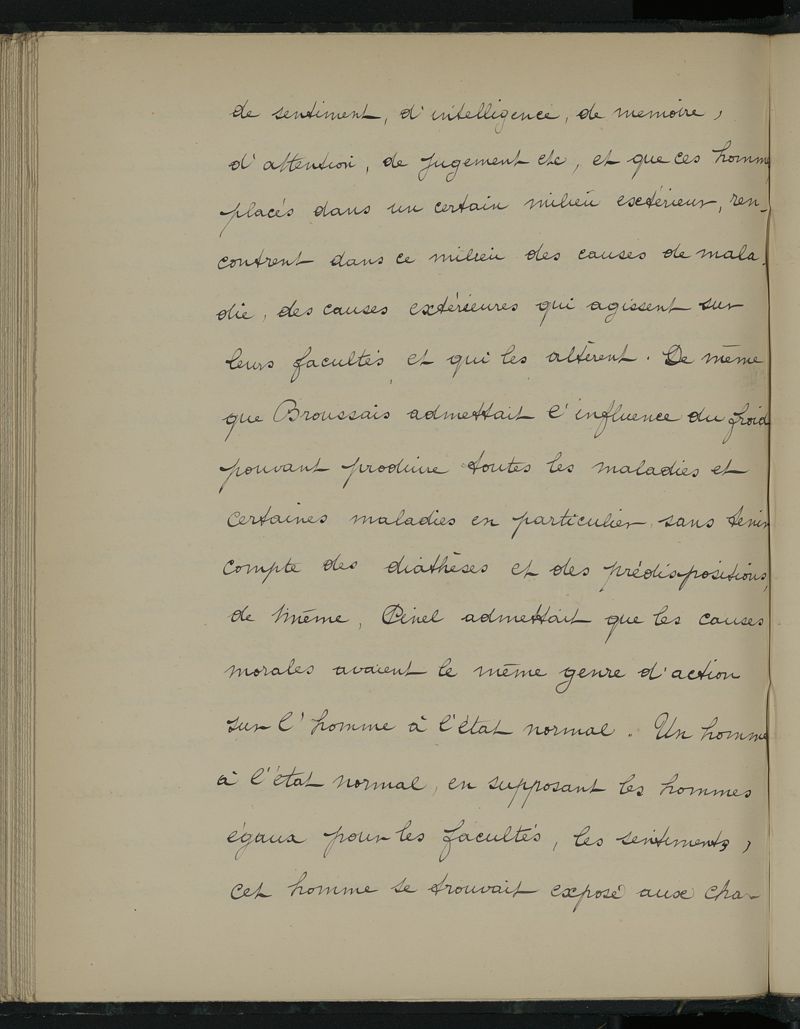 de sentiment, d'intelligence, de memoire,
d'attention, de jugement etc, et que ces homm
placés dans un certain milieu extérieur, ren-
contrent dans ce milieu des causes de mala-
die, des causes extérieures qui agissent sur
leurs facultés et qui les altèrent. De même
que Broussais admettait l'influence du froid
pouvant produire toutes les maladies et
certaines maladies en particulier, sans tenir
compte des diathèses et des prédispositions,
de même, Pinel admettait que les causes
morales avaient le même genre d'action
sur l'homme à l'état normal. Un homme
à l'état normal, en supposant les hommes
égaux pour les facultés, les sentiments,
cet homme se trouvait exposé aux cha-